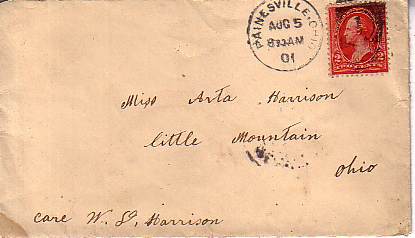 PAINESVILLE OHIO
AUG 5
8 30 AM
01
TWO CENTS
Miss Arta Harrison
Little Mountain
Ohio
care W. S. Harrison